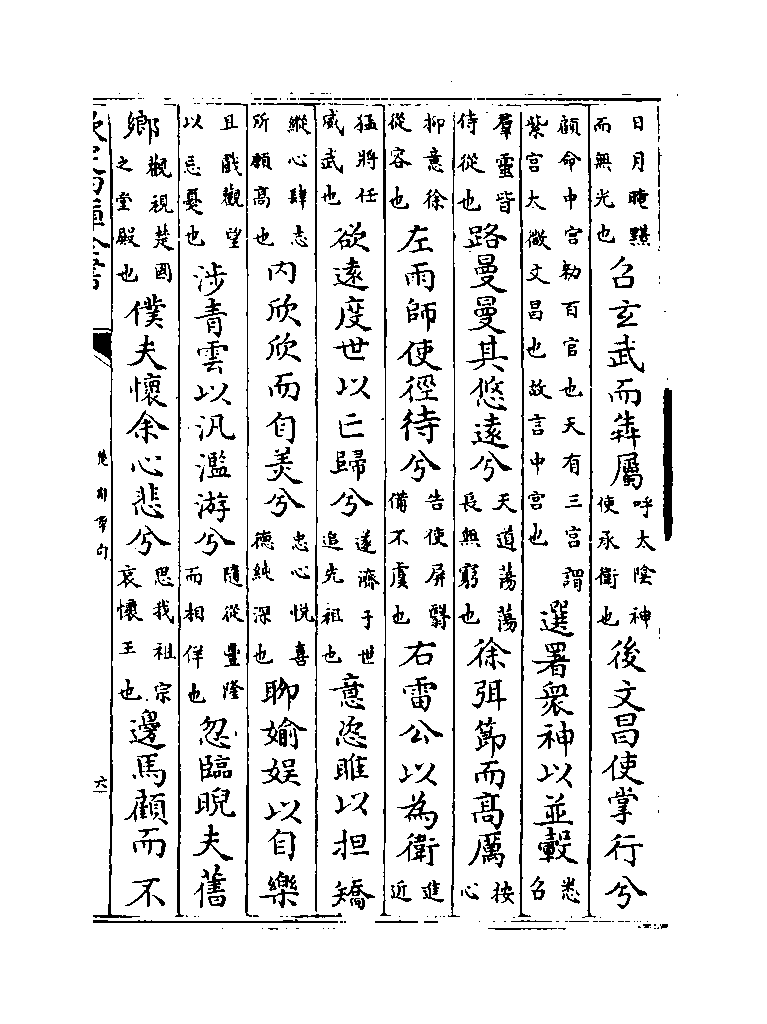 日月晻黮而無光也召玄武而犇屬呼太陰神使承衛也後文昌使掌行兮
顧命中宮勑百官也天有三宮謂紫宮太微文昌也故言中宮也選署衆神以並轂悉召
羣靈皆侍從也路曼曼其悠遠兮天道蕩蕩長無窮也徐弭節而高厲按心
抑意徐從容也左雨師使徑待兮告使屏翳備不虞也右雷公以為衛進近
猛將任威武也欲遠度世以亡歸兮遂濟于世追先祖也意恣睢以担矯
縱心肆志所願高也內欣欣而自美兮忠心悅喜德純深也聊媮娛以自樂
且戲觀望以忘憂也涉青雲以汎濫游兮隨從豐隆而相佯也忽臨睨夫舊
鄉觀視楚國之堂殿也僕夫懷余心悲兮思我祖宗哀懷王也邊馬顧而不
楚辭章句
六